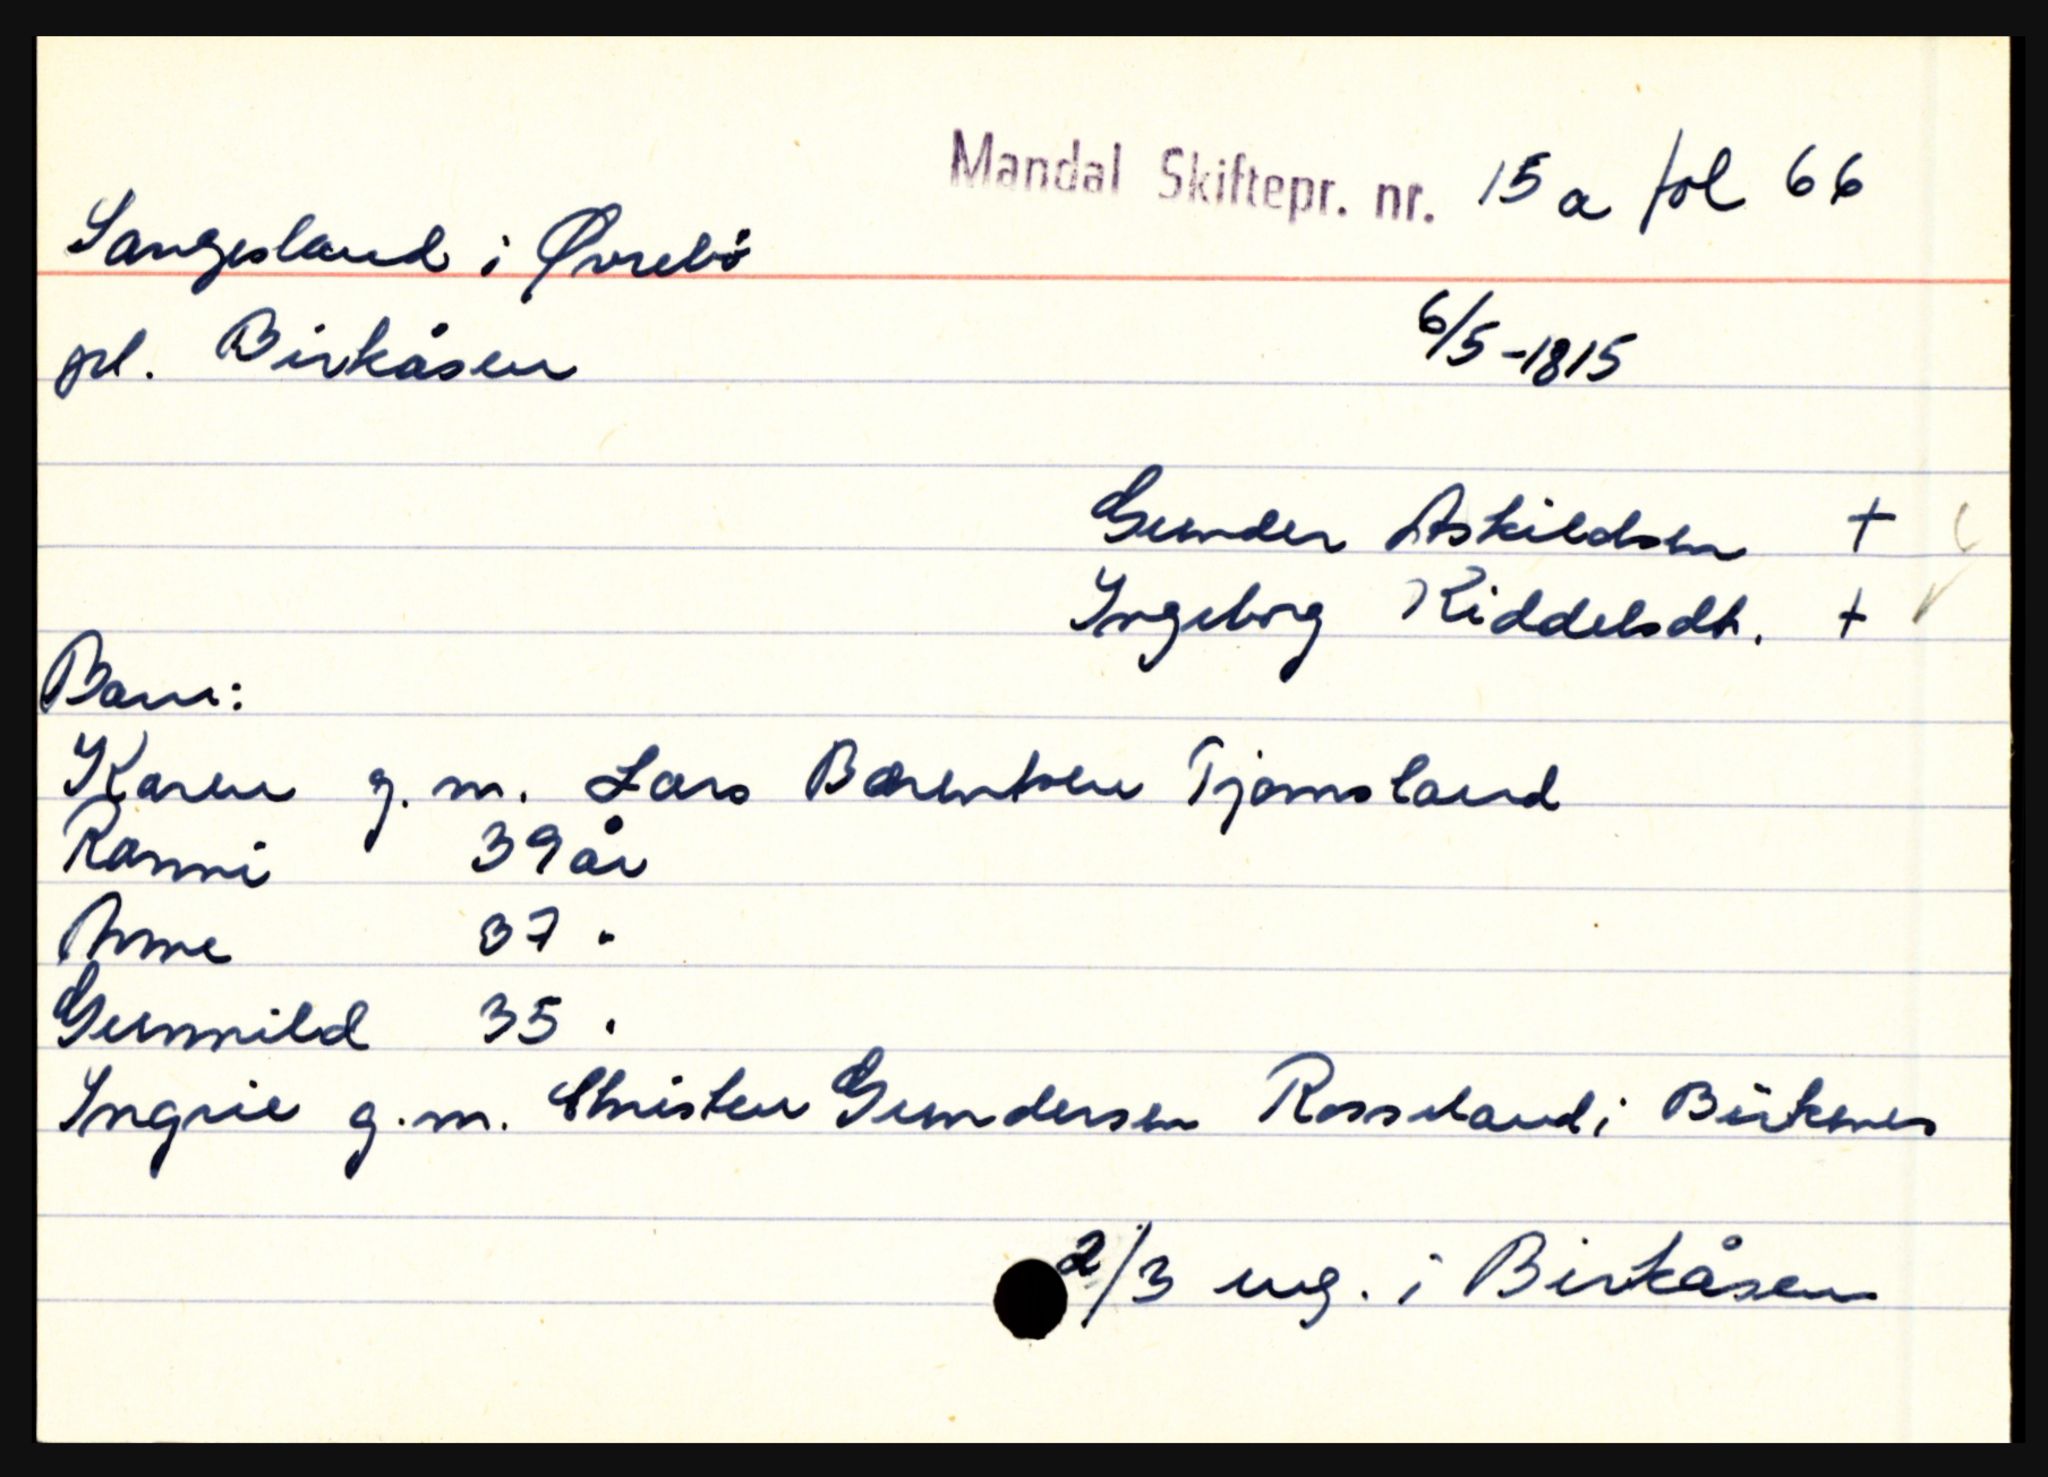 Mandal Skiftepr. nr. 15a fol 66
Sangesland i Øvrebö
pl. Birkåsen
6/5-1815
Gunder Askildsen +
Ingeborg Kiddelsdt. +
Barn:
Karen g.m. Lars Bærentsen Tjomsland
Ranni 39 år
Anne 37 "
Gunnild 35 "
Ingrie g.m. Christen Gundersen Rosseland i Birkenes
2/3 ug. i Birkåsen